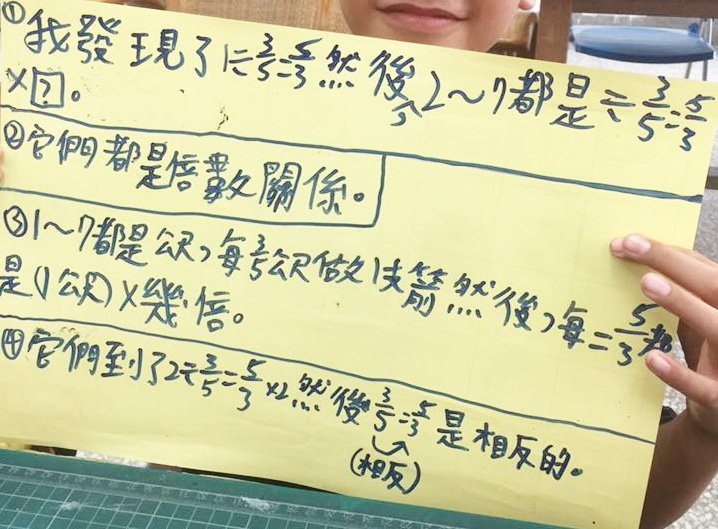 ①我發現了1÷3/5=5/3然後,2~7都是÷3/5=5/3
×?。
②它們都是倍數關係。
③1~7都是公尺,每3/5公尺做1支箭然後,每=5/3都
是(1公尺)×幾倍。
④它們到了2÷3/5=5/3×2然後3/5=5/3是相反的。
(相反)